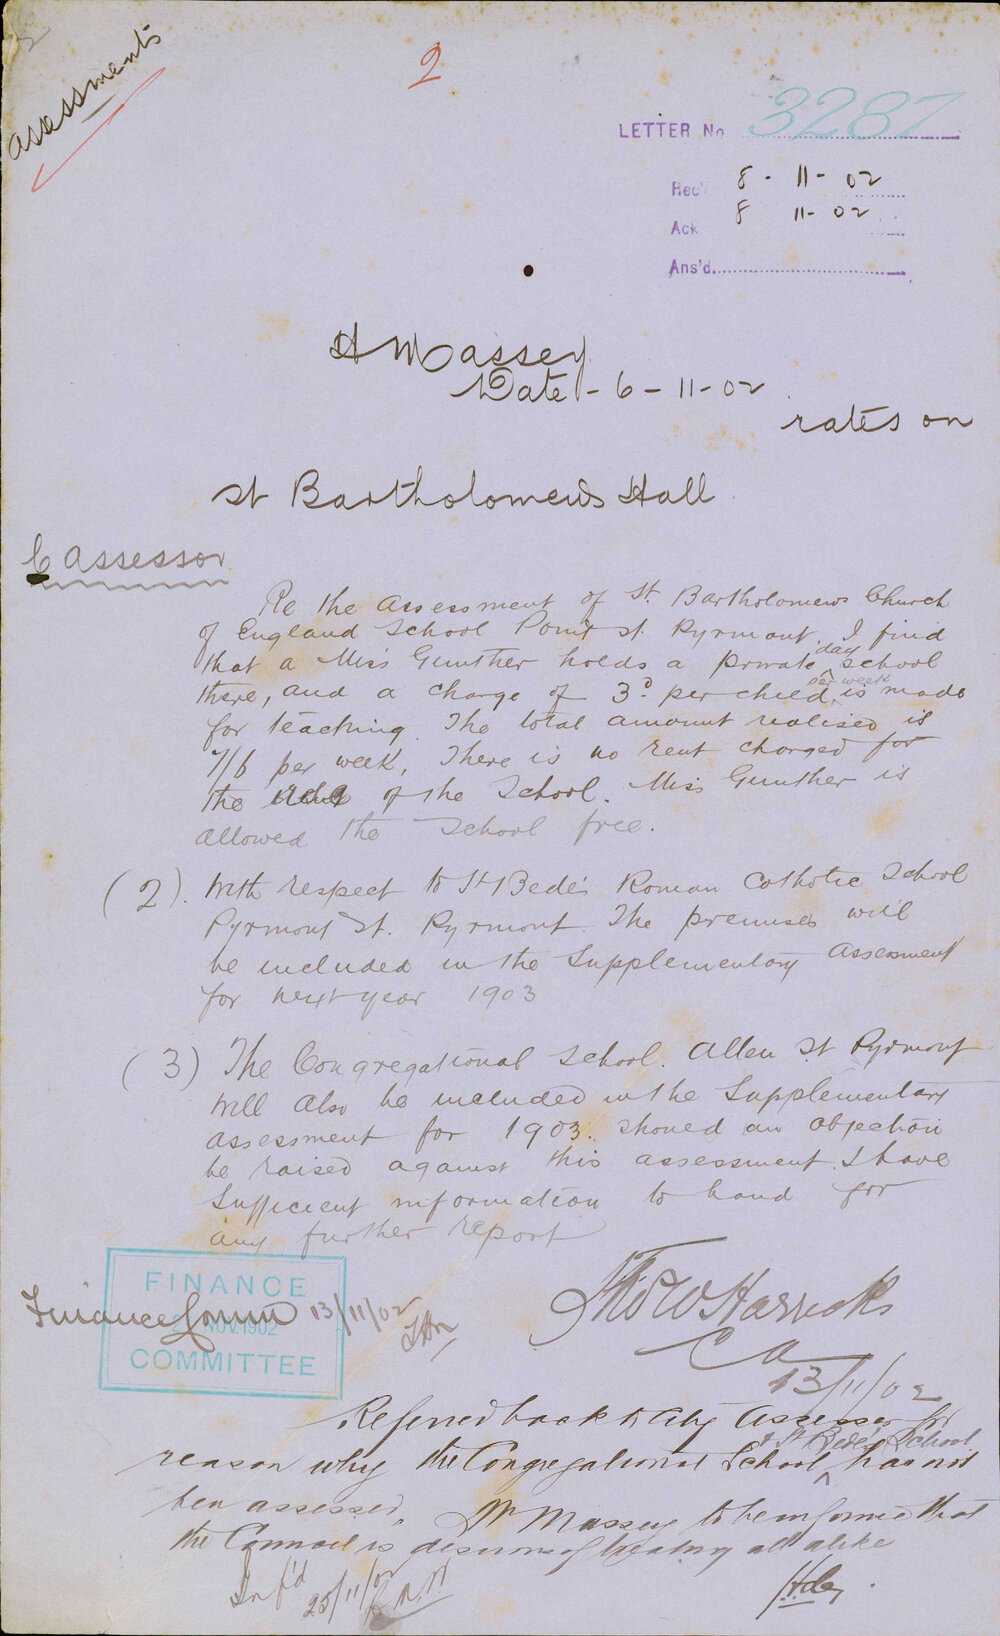 Assessments
2
LETTER No 3287
Rec'd 8-11-02
Ack 8 11-02
Ans'd.
A Massey
Date - 6-11-02
rates on
St Bartholomews Hall
C Assessor
Re the Assessment of St. Bartholomews Church
of England School Point St. Pyrmont. I find
that a Miss Gunther holds a private day school
there, and a charge of 3d per child per week is made
for teaching. The total amount realised is
7/6 per week, There is no rent charged for
the of the School. Miss Gunther is
allowed the School free.
(2). With respect to St Bede's Roman Catholic School
Pyrmont St. Pyrmont. The premises will
be included in the Supplementary Assessment
for next year 1903
(3) The Congregational School. Allen St Pyrmont
will also be included in the Supplementary
assessment for 1903. Should an objection
be raised against this assessment I have
sufficient information to hand for
any further report
FINANCE
NOV. 1902
COMMITTEE
Finance Comm 13/11/02
Thos W Harrocks
CA
13/11/02
Referred back to City Assessor for
reason why the Congregational School & St Bede's School has not
been assessed, Mr Massey to be informed that
the Council is desirous of treating all alike
Inf'd
25/11/02